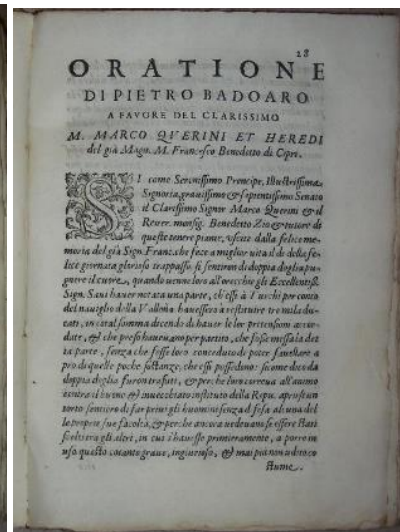 28
ORATIONE
DI PIETRO BADOARO
A FAVORE DEL CLARISSIMO
M. MARCO QVERINI ET HEREDI
del già Magn. M. Francesco Benedetto di Cipri.
SI come Serenissimo Prencipe, Illustrissima
Signoria, grauissimo & sapientissimo Senato
il Clarissimo Signor Marco Querini & il
Reuer. monsig. Benedetto Zio & tutore di
queste tenere piante, vscite dalla felice me
moria del già Sign. Franc. che fece a miglior vita il dì della fe
lice giornata glorioso trappasso, si sentiron di doppia doglia pu
gnere il cuore, quando venne loro all'orecchie gli Eccellentiss.
Sign. Saui hauer notata una parte, ch'essi à Turchi per conto
del nauiglio della hauessero à restituire tre mila du
cati, in total somma dicendo di hauer le lor pretensioni accor
date, & che presi haueuano per partito, che fosse messa la det
ta parte, senza che fosse loro conceduto di poter fauellare a
prò di quelle poche sustanze, che essi possedono: sicome dico da
doppia doglia furon trafitti, & perche lor correua all'animo
contra il buono & inuecchiato instituto della Repu. aprirse un
torto sentiero di far priui gli huomini senza difesa alcuna del
le proprie sue facoltà, & perche ancora uedeuano se essere stati
scelti tra gli altri, in cui s'hauesse primieramente, a porre in
uso questo cotanto graue, ingiurioso, & mai più non udito co
stume.